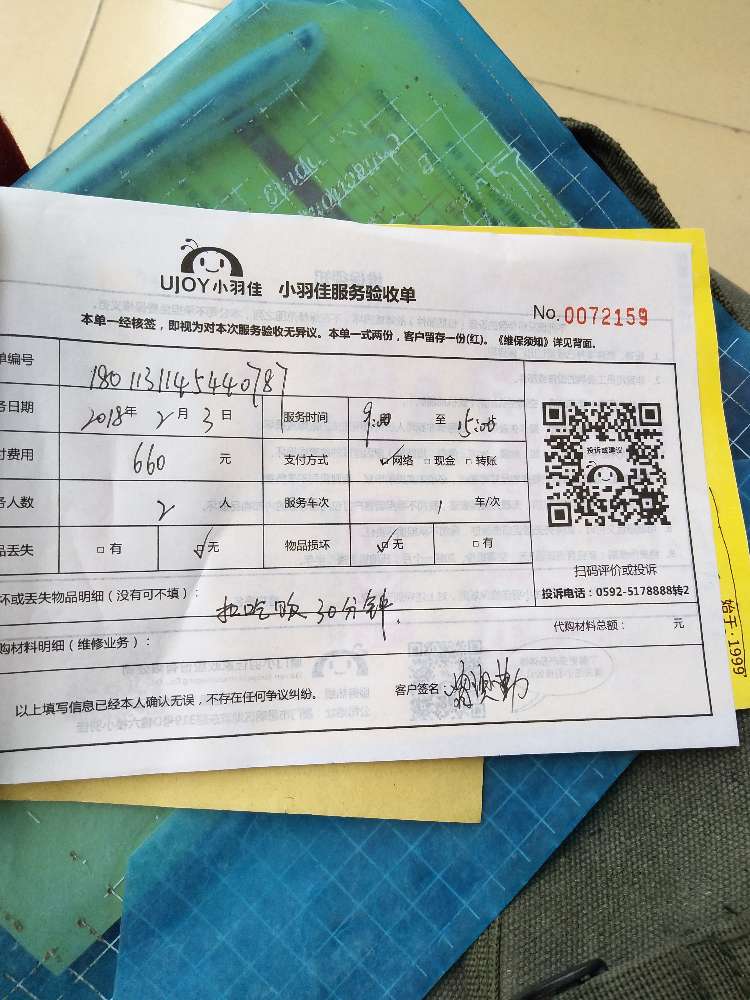 UJOY小羽佳 小羽佳服务验收单
No.0072159
本单一经核签，即视为对本次服务验收无异议。本单一式两份，客户留存一份(红)。《维保须知》详见背面。
单编号 180113114544078
务日期 2018年 2 月 3 日 服务时间 9:00 至 15:00
付费用 660 元 支付方式 网络 现金 转账
务人数 2 人 服务车次 1 车/次
品丢失 有 无 物品损坏 无 有
投诉或建议
扫码评价或投诉
投诉电话：0592-5178888转2
坏或丢失物品明细（没有可不填）： 扣吃饭30分钟.
购材料明细（维修业务）： 代购材料总额： 元
以上填写信息已经本人确认无误，不存在任何争议纠纷。 客户签名：
始于·1999